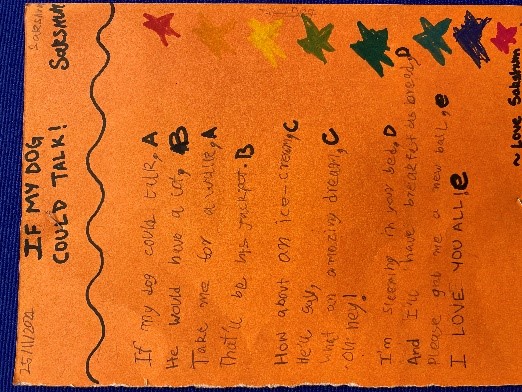 25/11/2021
IF MY DOG
COULD TALK!
Saksham
If my dog could talk, A
He would have a lot, B
Take me for a walk, A
That'll be his jackpot. B
How about an ice-cream, C
He'll say,
What an amazing dream, C
Oh hey!
I'm sleeping in your bed, D
And I'll have breakfast as bread, D
Please get me a new ball, e
I LOVE YOU ALL! e
~ Love Saksham